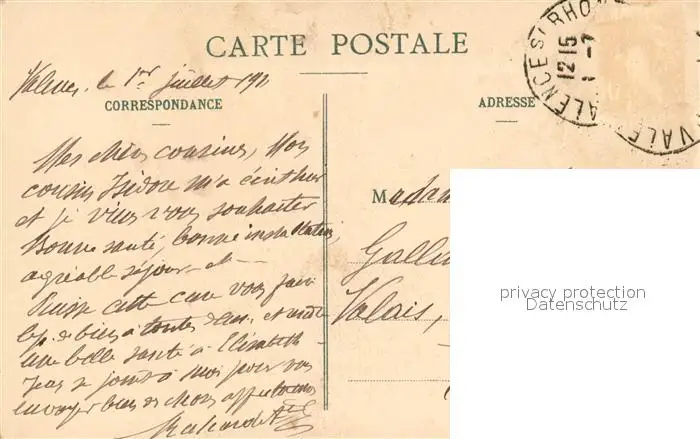 CARTE POSTALE
Valence, le 1er Juillet 191
CORRESPONDANCE
ADRESSE
VALENCE S/ RHO
12 15
1 - 7
VALE
Mes chers cousins, Mon
cousin Isidore m'a écrit hier
et je viens vous souhaiter
Bonne santé, bonne installation,
agréable séjour et
Puisse cette cure vous faire
bp. de bien à toutes deux, et rendre
une belle santé à Elisabeth
Jean se joint à moi pour vous
envoyer bien des choses affectueuses
Madam
Valais,
privacy protection
Datenschutz